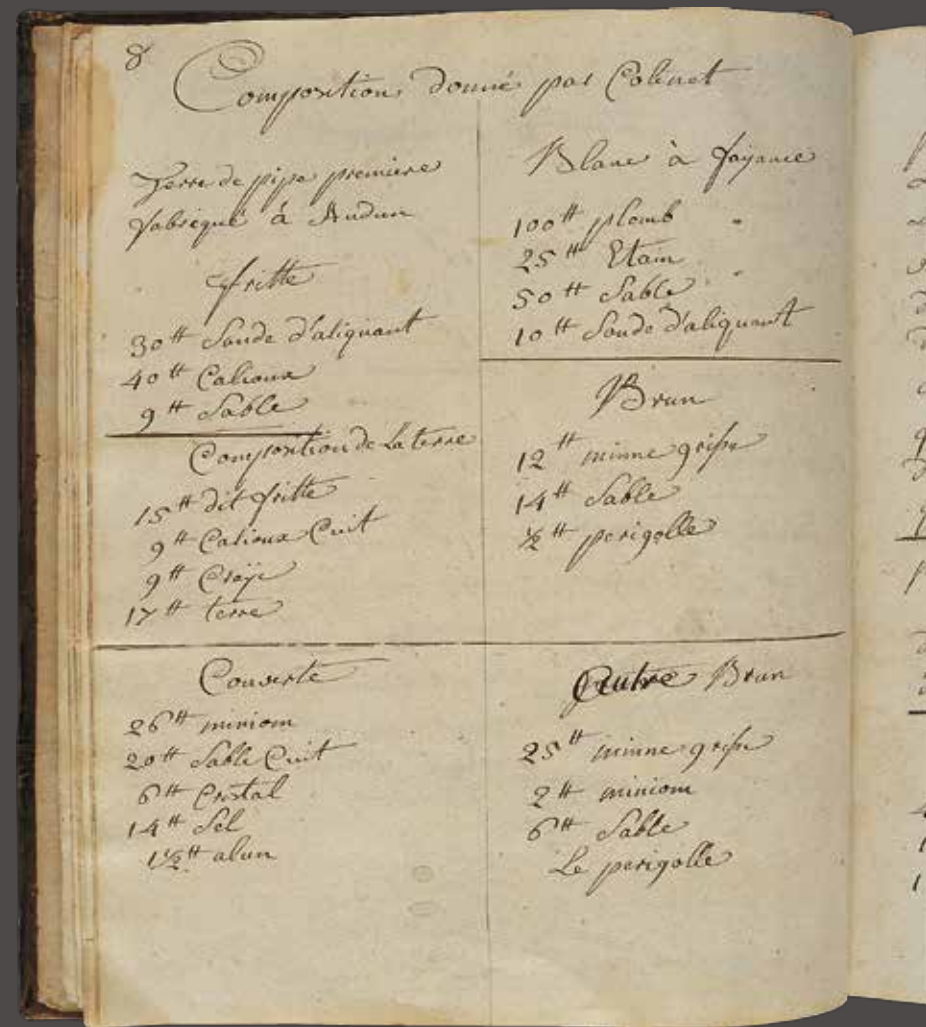 8
Composition donné par Colinet
Terre de pipe premiere
fabriqué à Audun
fritte
30 ₶ Soude d'aliquant
40 ₶ Calioux
9 ₶ Sable
Composition de La terre
15 ₶ dit fritte
9 ₶ Calioux Cuit
9 ₶ Craÿe
17 ₶ terre
Couverte
26 ₶ miniom
20 ₶ Sable Cuit
6 ₶ Cristal
14 ₶ Sel
1½ ₶ alun
Blanc à fayance
100 ₶ plomb
25 ₶ Etain
50 ₶ Sable
10 ₶ Soude d'aliquant
Brun
12 ₶ minne grise
14 ₶ Sable
½ ₶ perigolle
Autre Brun
25 ₶ minne grise
2 ₶ miniom
6 ₶ Sable
Le perigolle